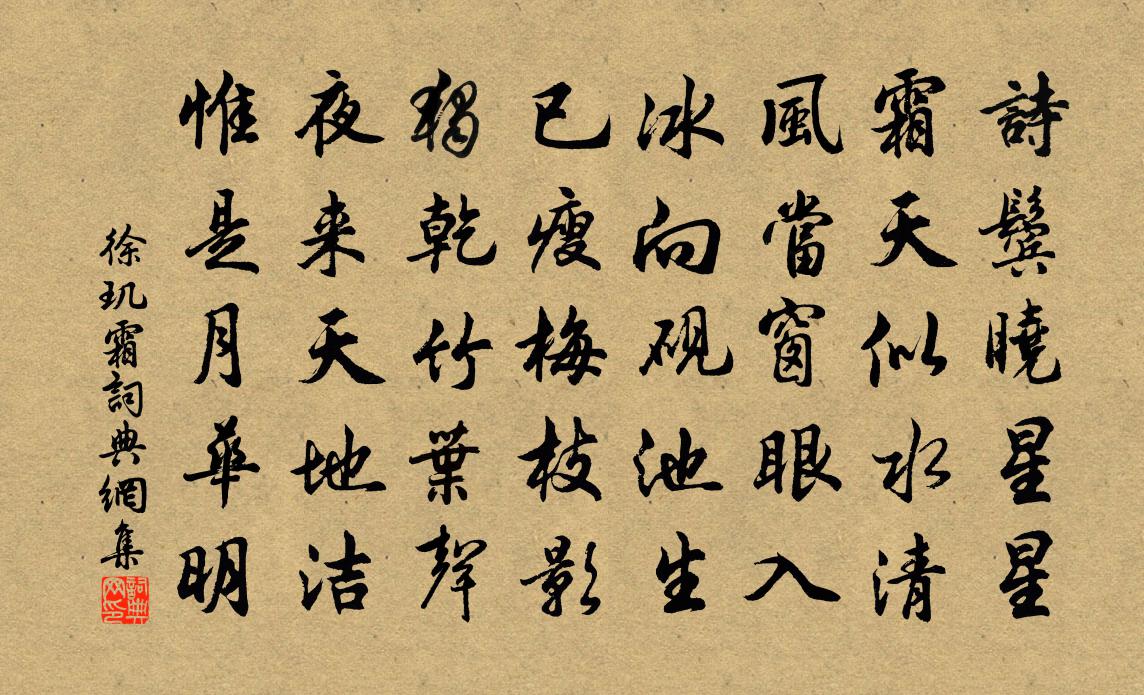 詩鬢曉星星
霜天似水清
風當窗眼入
冰向硯池生
已瘦梅枝影
猶乾竹葉聲
夜来天地洁
惟是月華明
徐玑霜詞典網集
詞典网印